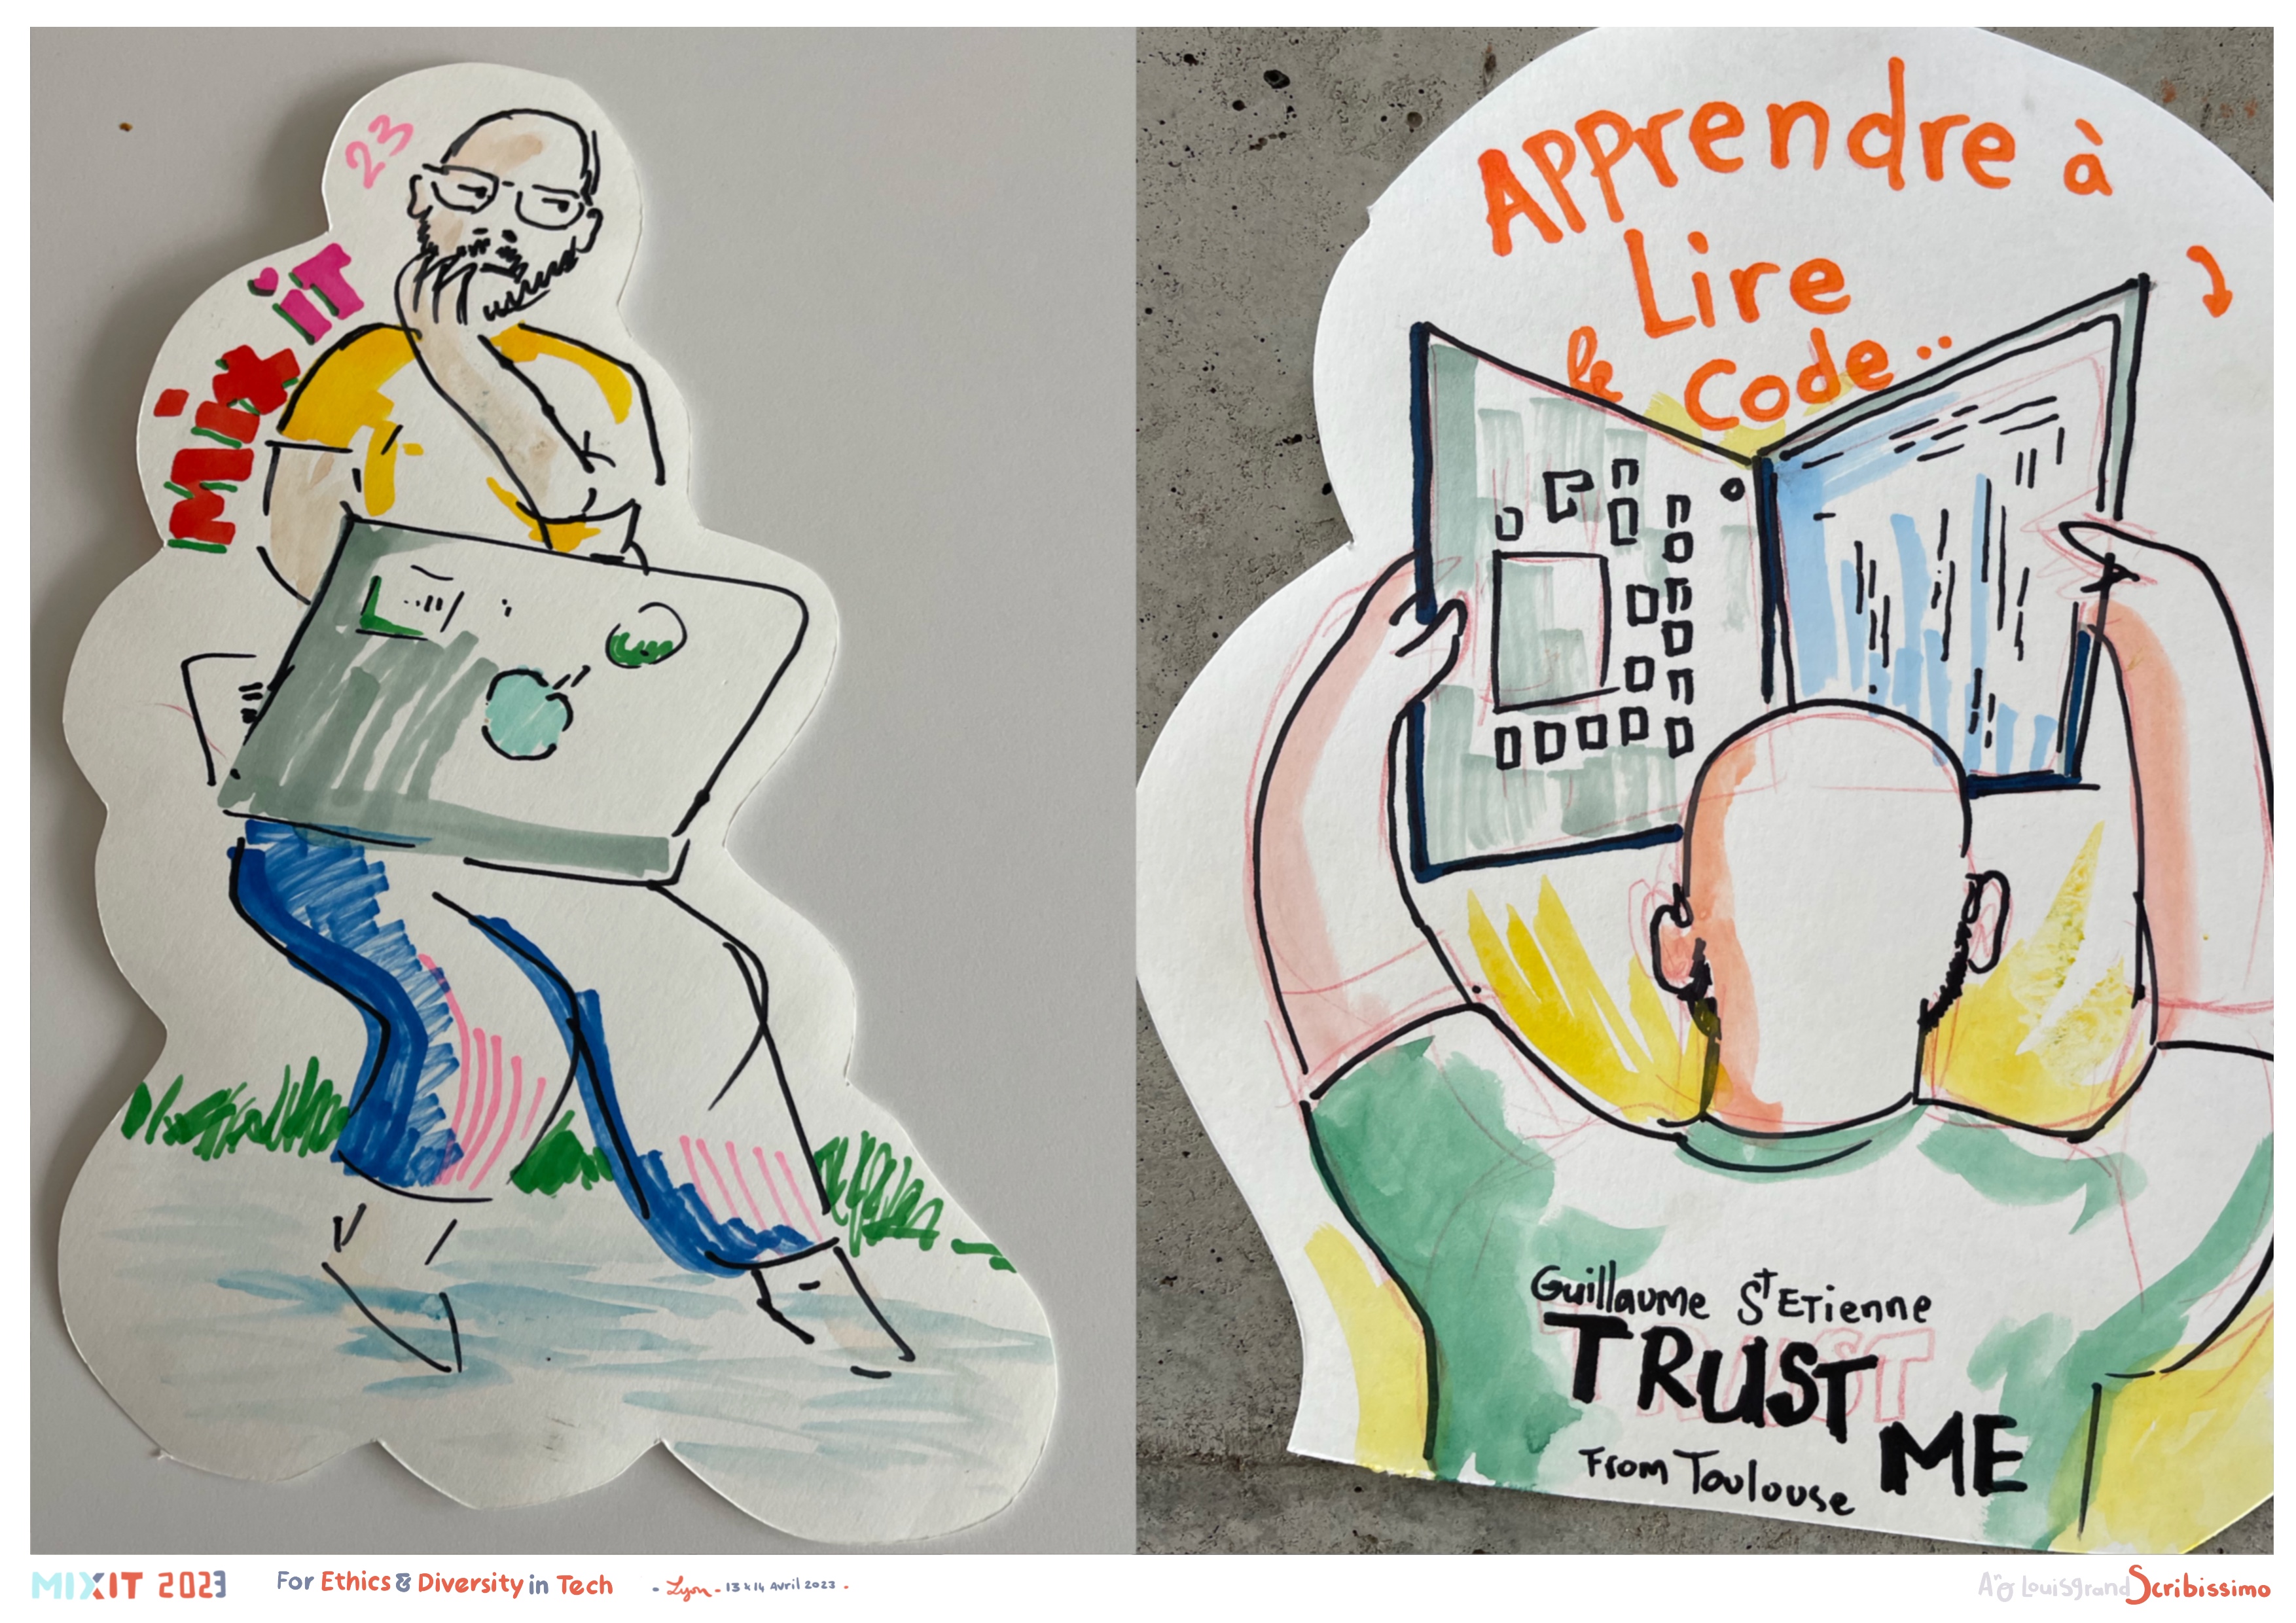 23
Mix iT
Apprendre à
Lire
le Code..
Guillaume St Etienne
TRUST
ME
From Toulouse
MIXIT 2023
For Ethics & Diversity in Tech
- Lyon - 13 & 14 Avril 2023 -
Louisgrand Scribissimo